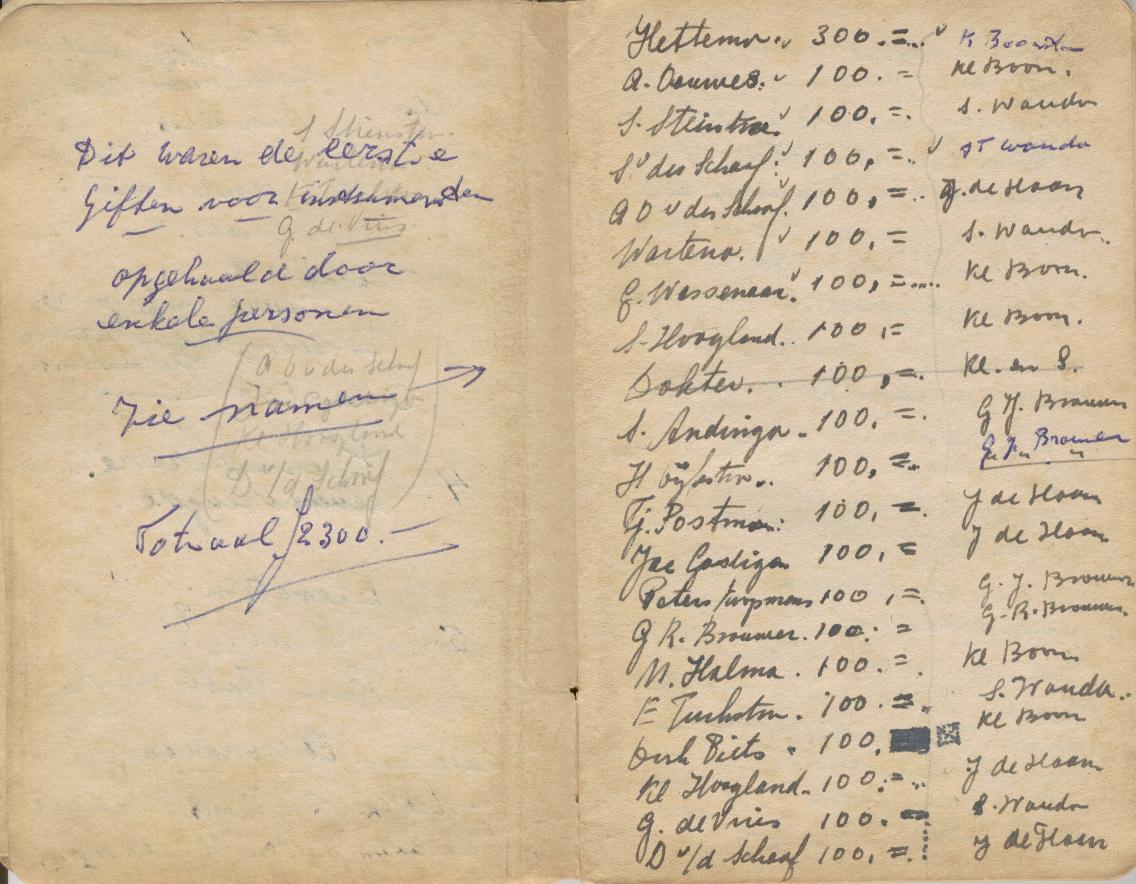 Dit waren de eerste
Giften voor
opgehaald door
enkele personen
Zie namen
Totaal f 2300.—
S Stienstra
G. de Vries
(A D v der Schaaf
Kl Hoogland
D v/d Schaaf)
Hettema. 300.=.. K Boonstra
A. Douwes. 100.= Kl Boon.
S. Steinstra. 100.=. S. Wanda
S v der Schaaf. 100,=.. ST Wanda
A D v der Schaaf. 100,=.. J. de Haan
Wartena. 100,= S. Wanda.
G. Wassenaar. 100,=.... Kl Boon.
S. Hoogland.. 100,= Kl Boon.
Dokter.. 100,=. Kl. en S.
S. Andinga. 100,=. G J. Brouwer
H 100,=. G. R. Brouwer
Tj. Postma. 100,= J de Haan
Jac Gastiga 100,= J de Haan
Peters/Koopmans 100,=. G. J. Brouwer
G R. Brouwer. 100.= G. R. Brouwer.
M. Halma. 100.=. Kl Boon
F Turkstra. 100.=. S. Wanda.
Durk Piets. 100, Kl Boon
Kl Hoogland. 100.=.. J de Haan
G. de Vries 100.= S. Wanda
D v/d Schaaf 100,=. J de Haan